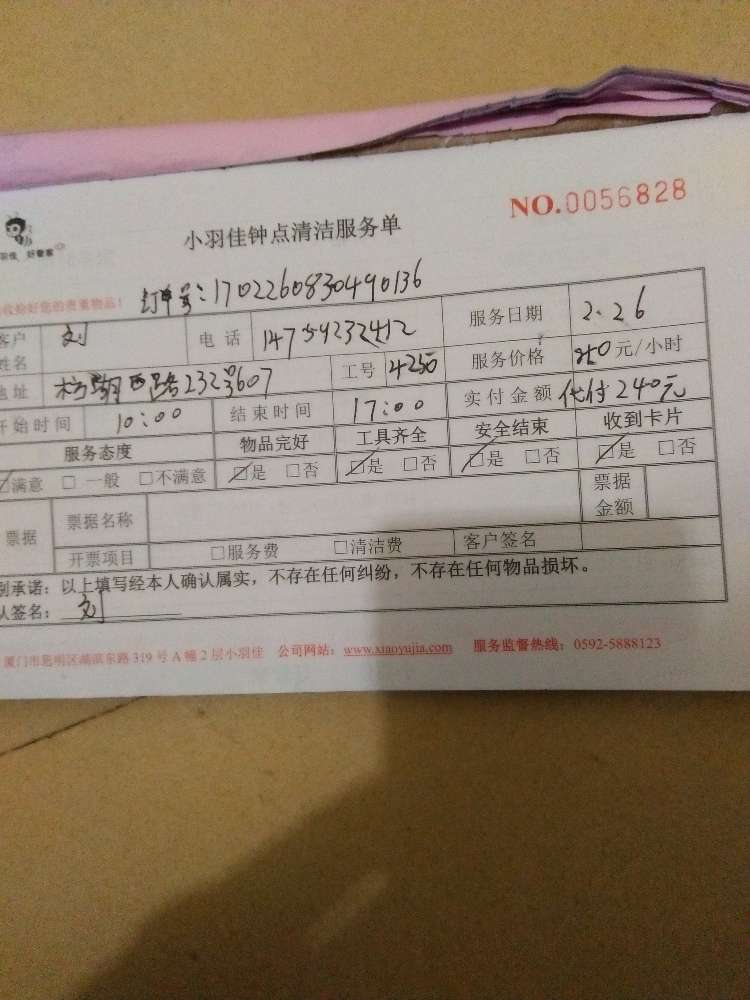 NO.0056828
小羽佳钟点清洁服务单
羽佳 好管家
收拾好您的贵重物品！ 订单号：1702260830490136
客户姓名 刘 电话 14759232412 服务日期 2.26
地址 西路232号607 工号 4250 服务价格 元/小时
开始时间 10:00 结束时间 17:00 实付金额 代付240元
服务态度 物品完好 工具齐全 安全结束 收到卡片
☑满意 □一般 □不满意 ☑是 □否 ☑是 □否 ☑是 □否 ☑是 □否
票据 票据名称 票据金额
开票项目 □服务费 □清洁费 客户签名
别承诺：以上填写经本人确认属实，不存在任何纠纷，不存在任何物品损坏。
认签名：刘
厦门市思明区湖滨东路319号A幢2层小羽佳 公司网站：www.xiaoyujia.com 服务监督热线：0592-5888123